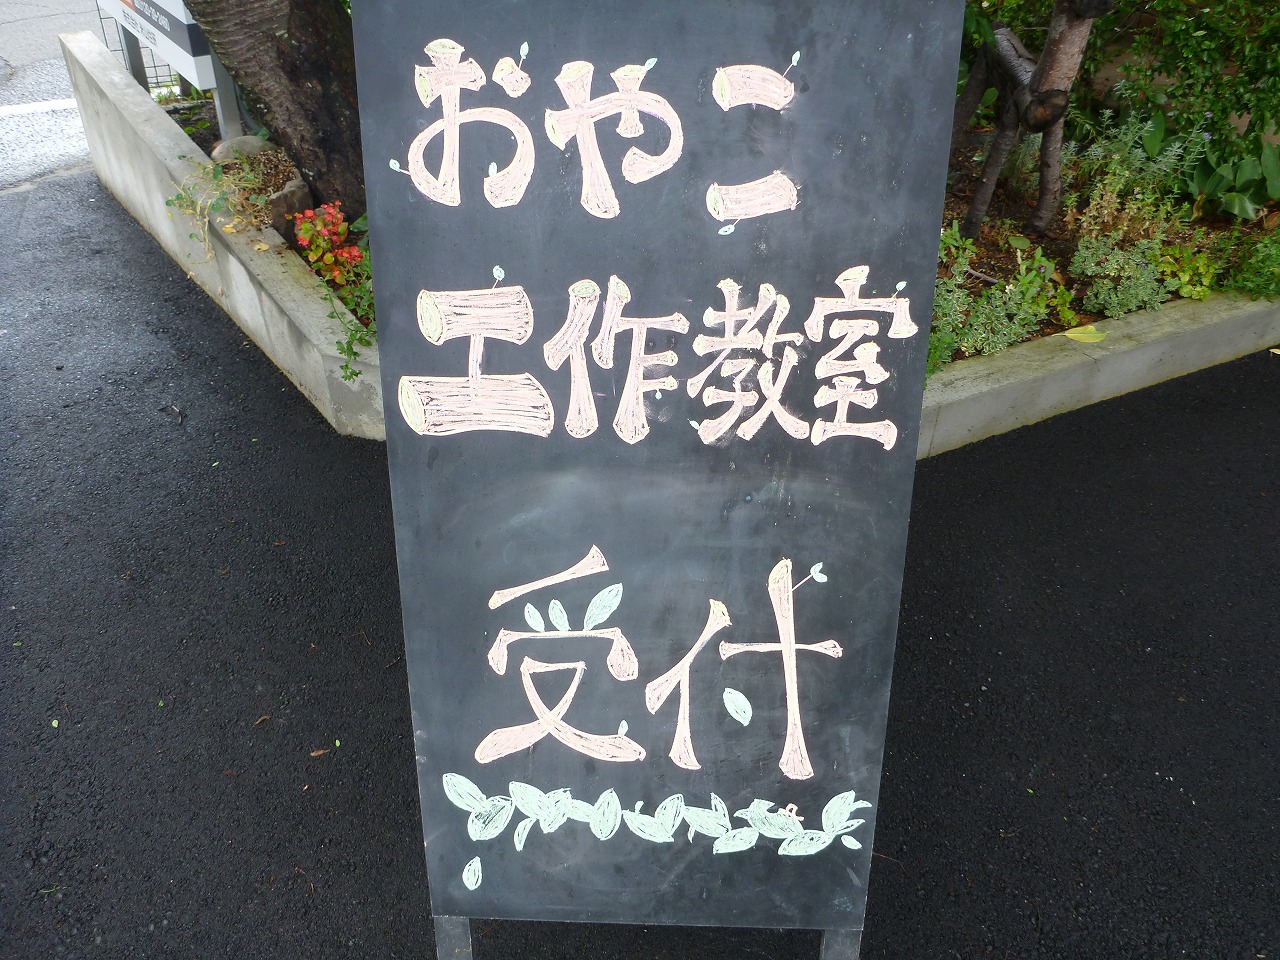 おやこ
工作教室
受付